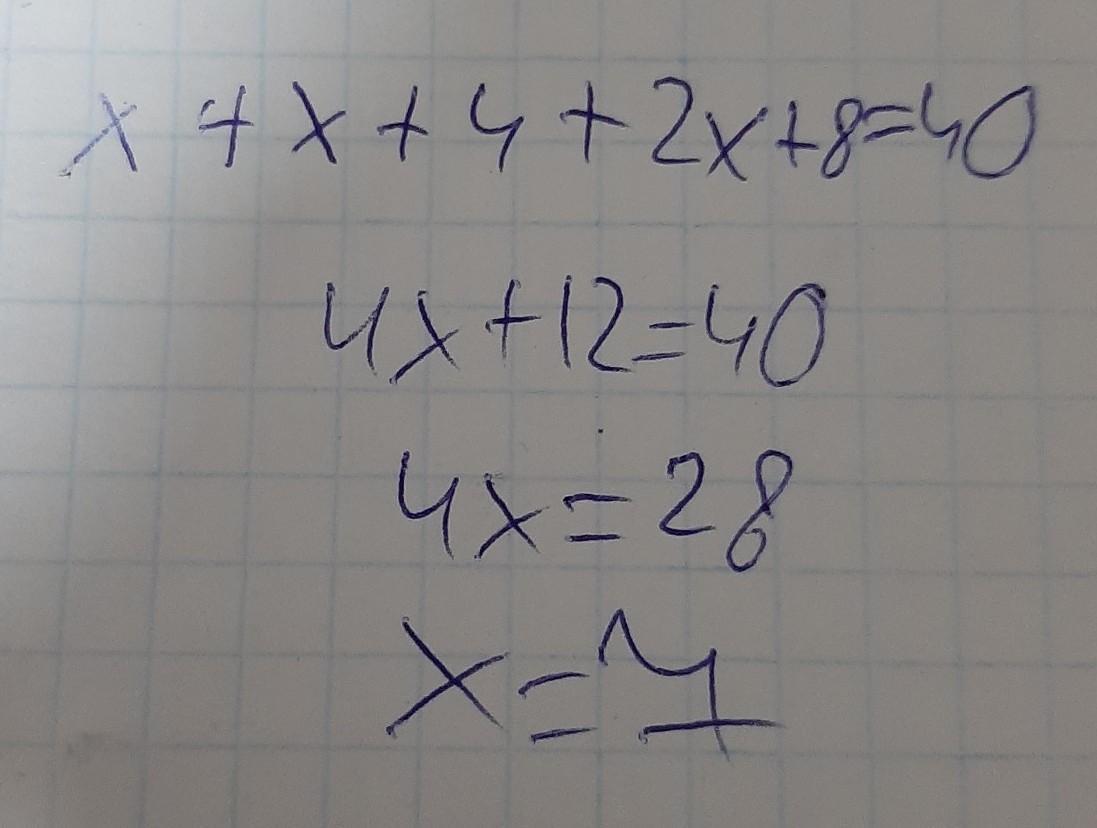 x + x + 4 + 2x + 8 = 40
4x + 12 = 40
4x = 28
x = 7